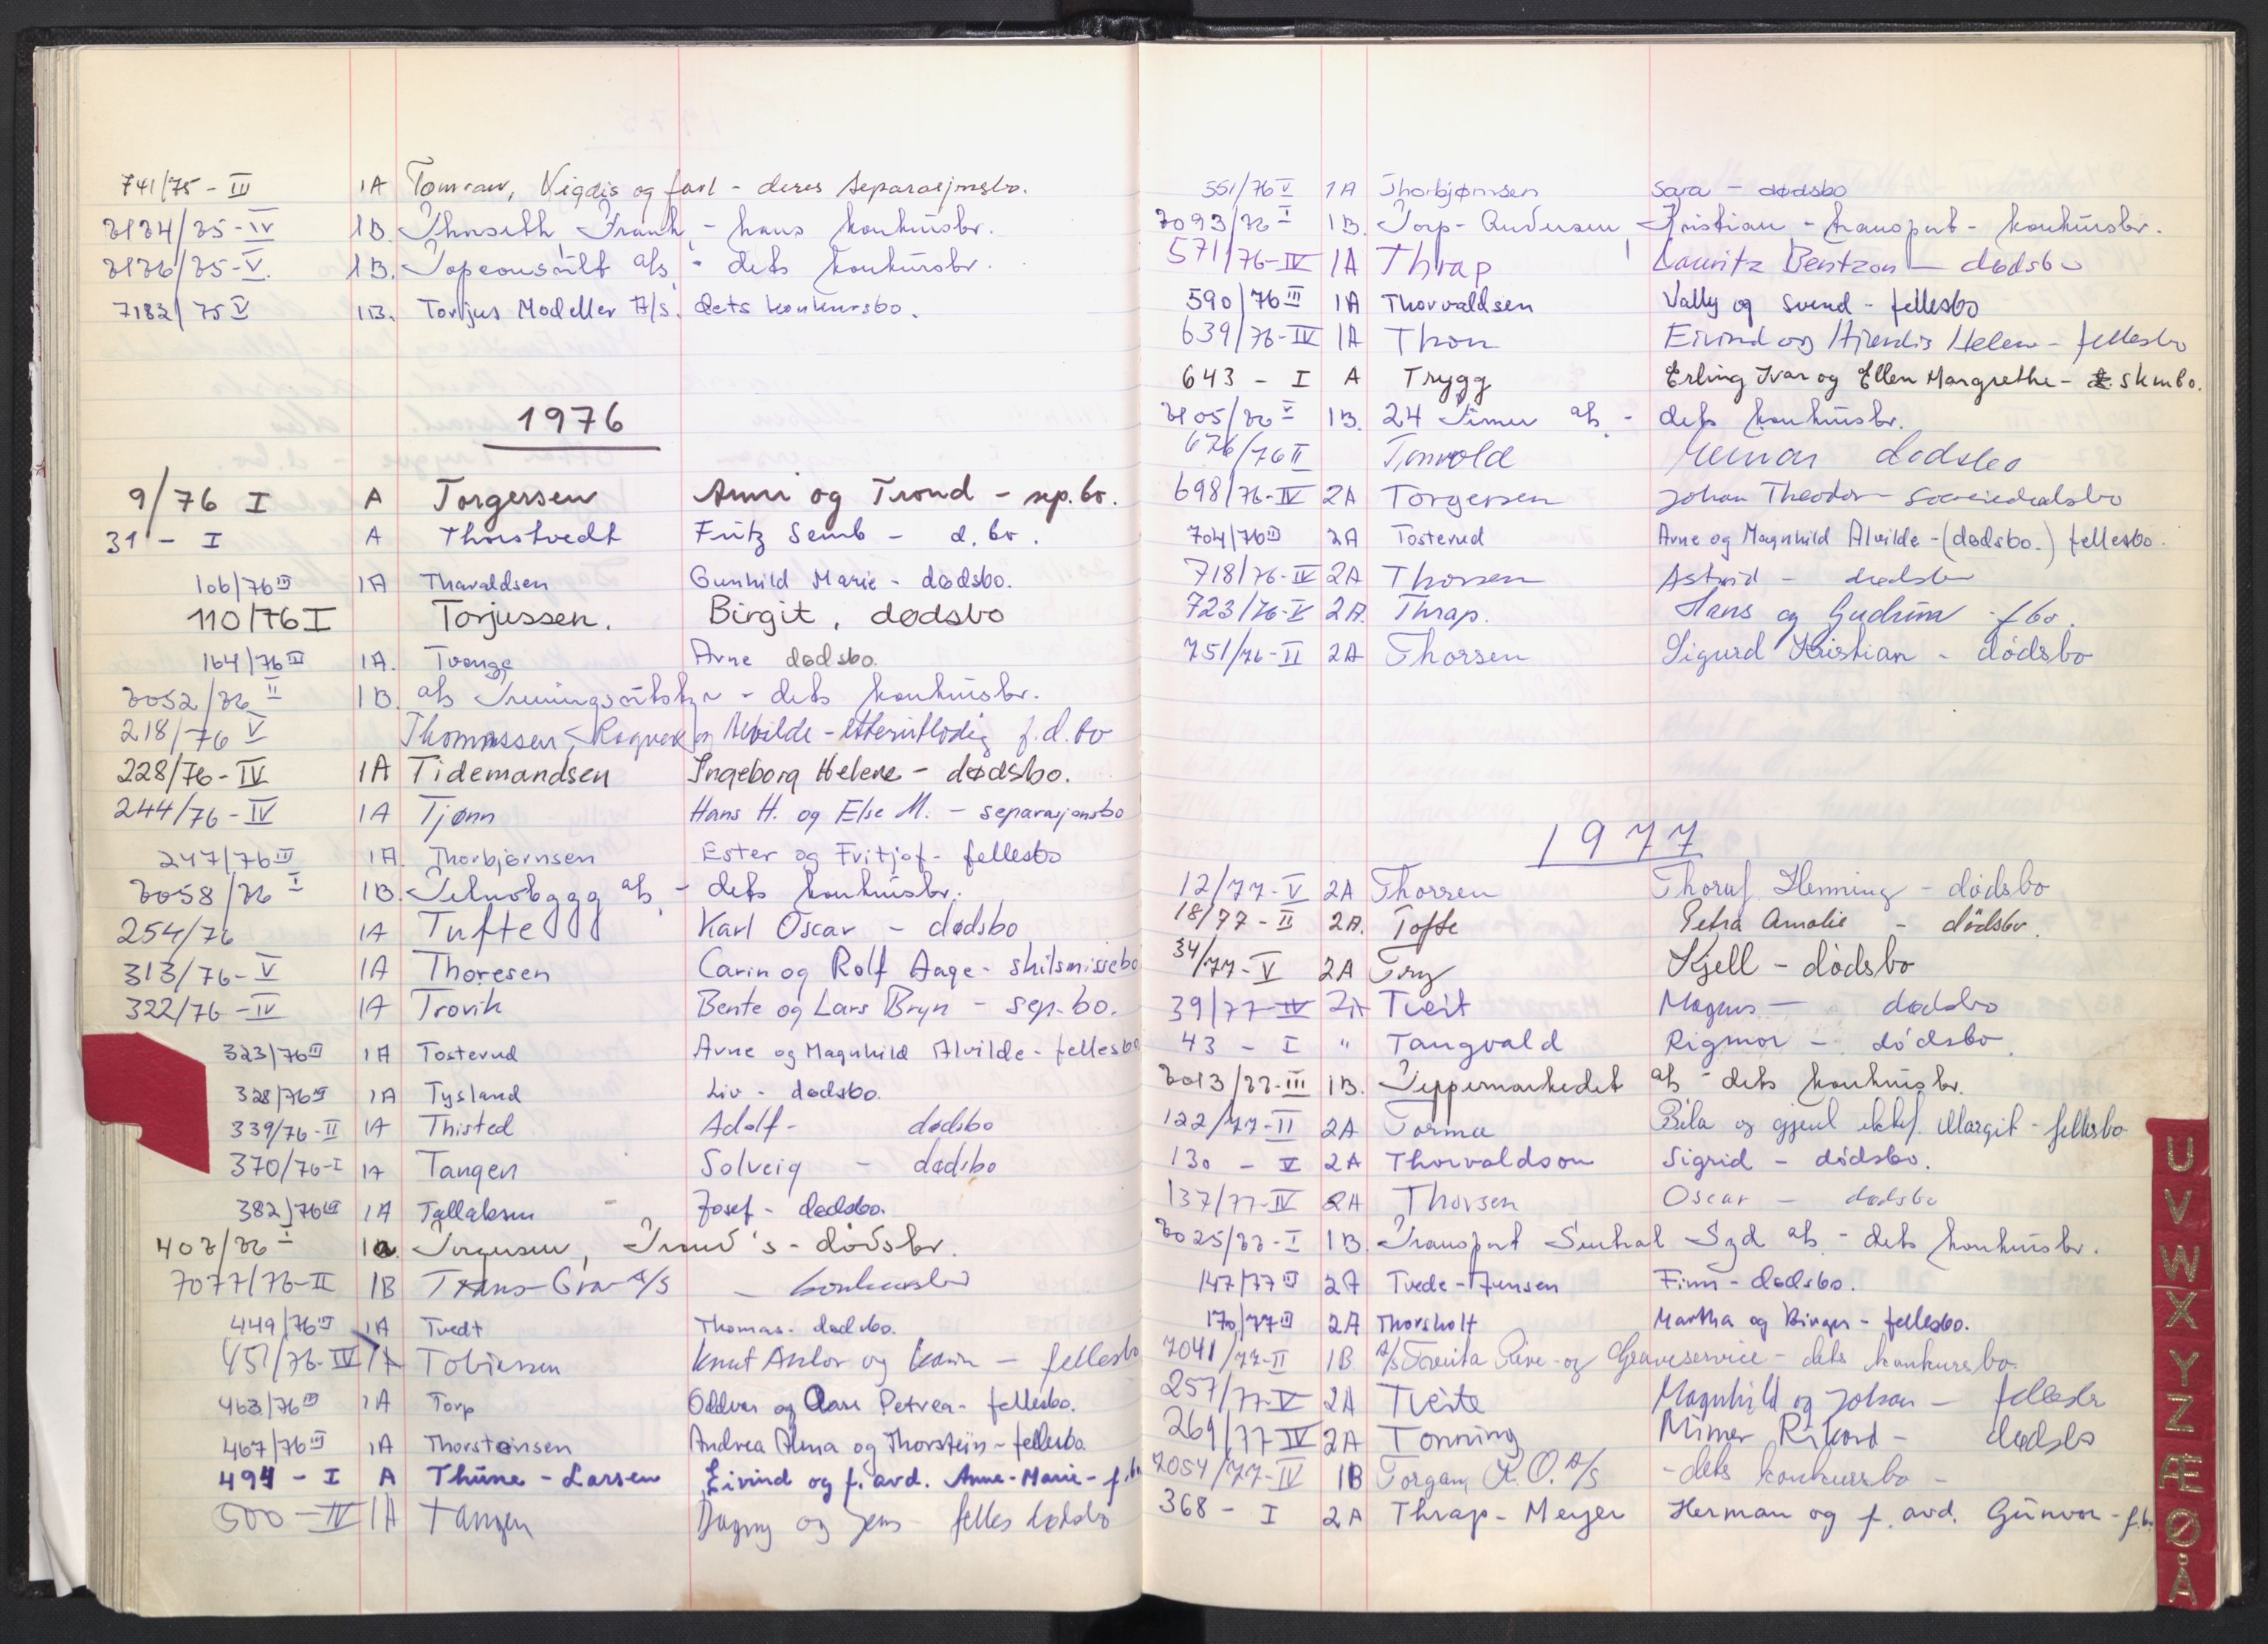 741/75 - III 1A Tomran, Vigdis og Carl - deres separasjonsbo.
7174/75 - IV 1B. Thorseth, Frank, - hans konkursbo.
7176/75 - V. 1B. Topconsult a/s, - dets konkursbo.
7182/75 V 1B. Torjus Modeller A/s. dets konkursbo.
1976
9/76 I A Torgersen Anni og Trond - sep.bo.
31 - I A Thorstvedt Fritz Semb - d. bo.
106/76 III 1A Tharaldsen Gunhild Marie - dødsbo.
110/76 I Torjussen. Birgit, dødsbo
164/76 III 1A. Tvenge Arne dødsbo.
7052/76 II 1B a/s Treningsutstyr - dets konkursbo.
218/76 V Thomassen, Ragnar og Alvilde - etterutlodig f.d.bo
228/76 - IV 1A Tidemandsen Ingeborg Helene - dødsbo.
244/76 - IV 1A Tjønn Hans H. og Else M. - separasjonsbo
247/76 III 1A. Thorbjørnsen Ester og Fritjof - fellesbo
7058/76 I 1B. Teknobygg a/s, - dets konkursbo.
254/76 1A Tufte Karl Oscar - dødsbo
313/76 - V 1A Thoresen Carin og Rolf Aage - skilsmissebo
322/76 - IV 1A Trovik Bente og Lars Bryn - sep. bo.
323/76 III 1A Tosterud Arne og Magnhild Alvilde - fellesbo
328/76 III 1A Tysland Liv - dødsbo.
339/76 - II 1A Thisted Adolf - dødsbo
370/76 - I 1A Tangen Solveig - dødsbo
382/76 III 1A Tallaksen Josef - dødsbo.
407/76 I 1a. Torgersen, Trond's - dødsbo.
7077/76 - II 1B Trans-Gra A/S - konkursbo
449/76 III 1A Tvedt Thomas - dødsbo.
451/76 - IV 1A Tobiessen Knut Anlov og Karin - fellesbo
463/76 III 1A Torp Oddvar og Aase Petrea - fellesbo.
467/76 III 1A Thorsteinsen Andrea Alma og Thorstein - fellesbo.
494 - I A Thüne - Larsen Eivind og f. avd. Anne-Marie - f.bo
500 - IV 1A Tangen Dagny og Jens felles dødsbo
551/76 V 1A Thorbjørnsen Sara - dødsbo
7093/76 I 1B. Torp-Andersen, Kristian - transport - konkursbo.
571/76 - IV 1A Thrap Lauritz Bentzon - dødsbo
590/76 III 1A Thorvaldsen Vally og Svend - fellesbo
639/76 - IV 1A Thon Eivind og Hjørdis Helene - fellesbo
643 - I A Trygg Erling Ivar og Ellen Margrethe - skmbo.
7105/76 V 1B. 24 Timer a/s. - dets konkursbo.
676/76 II Tonvold Gunnar dødsbo
698/76 - IV 2A Torgersen Johan Theodor -
704/76 III 2A Tosterud Arne og Magnhild Alvilde - (dødsbo.) fellesbo.
718/76 - IV 2A Thorsen Astrid - dødsbo
723/76 - V 2A. Thrap. Hans og Gudrun - f bo.
751/76 - II 2A Thorsen Sigurd Kristian - dødsbo
1977
12/77 - V 2A Thorsen Thoruf Henning - dødsbo
18/77 - II 2A. Tofte Petra Amalie - dødsbo.
34/77 - V 2A Try Kjell - dødsbo
39/77 - IV 2A Tveit Magnus - dødsbo
43 - I " Tangvald Rigmor - dødsbo.
7013/77 - III 1B. Teppemarkedet a/s - dets konkursbo.
122/77 - II 2A Torma Bela og gjenl. ektef. Margit - fellesbo
130 - V 2A Thorvaldson Sigrid - dødsbo.
137/77 - IV 2A Thorsen Oscar - dødsbo
7025/77 - I 1B. Transport Sentral Syd a/s - dets konkursbo.
147/77 III 2A Tvede-Jensen Finn - dødsbo.
170/77 III 2A Thorsholt Martha og Birger - fellesbo.
7041/77 - II 1B A/S Rive- og Graveservice - dets konkursbo.
257/77 - V 2A Tveite Magnhild og Johan - fellesbo
269/77 IV 2A Tonning Mimer Rikard - dødsbo
7054/77 - IV 1B Torgan, K. O. A/S - dets konkursbo -
368 - I 2A Thrap - Meyer Herman og f. avd. Gunvor - f.b.
U
V
W
X
Y
Z
Æ
Ø
Å